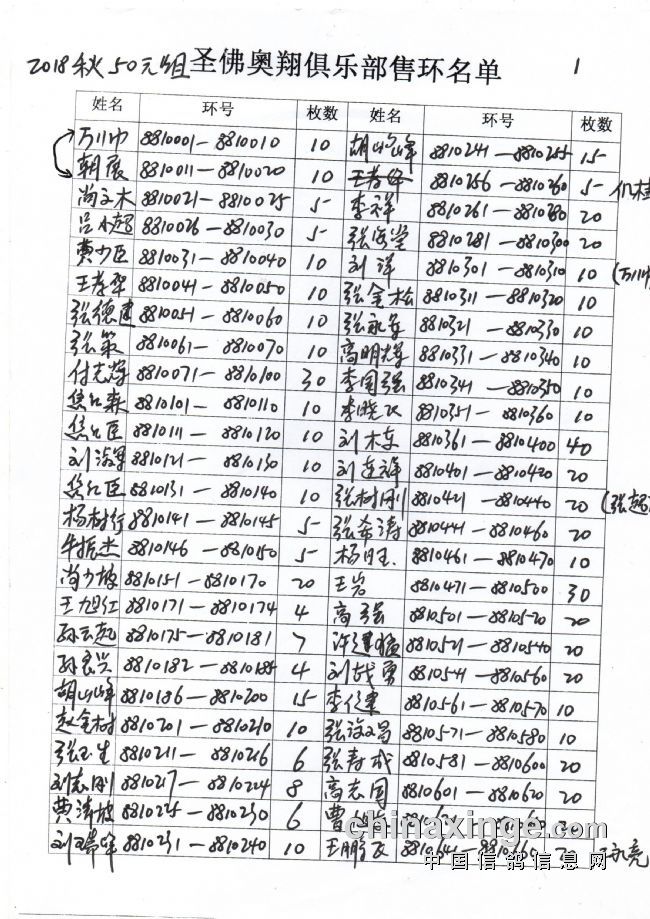 2018秋50元组 圣佛奥翔俱乐部售环名单 1
姓名 环号 枚数 姓名 环号 枚数
万川巾 8810001—8810010 10 胡山峰 8810241—8810255 15
朝展 8810011—8810020 10 王孝峰 8810256—8810260 5
尚文木 8810021—8810025 5 李祥 8810261—8810280 20
吕小超 8810026—8810030 5 张海堂 8810281—8810300 20
黄少臣 8810031—8810040 10 刘洋 8810301—8810310 10 (万川巾
王孝 8810041—8810050 10 张金松 8810311—8810320 10
张德建 8810051—8810060 10 张永安 8810321—8810330 10
张策 8810061—8810070 10 高明辉 8810331—8810340 10
付志辉 8810071—8810100 30 李国强 8810341—8810350 10
焦红森 8810101—8810110 10 李晓飞 8810351—8810360 10
焦红臣 8810111—8810120 10 刘木车 8810361—8810400 40
刘海军 8810121—8810130 10 刘连祥 8810401—8810420 20
焦红臣 8810131—8810140 10 张树刚 8810421—8810440 20 (张超
杨树行 8810141—8810145 5 张希涛 8810441—8810460 20
牛振杰 8810146—8810150 5 杨旺 8810461—8810470 10
尚少敏 8810151—8810170 20 王岩 8810471—8810500 30
王旭红 8810171—8810174 4 高强 8810501—8810520 20
孙云起 8810175—8810181 7 许建猛 8810521—8810540 20
孙家兴 8810182—8810185 4 刘战勇 8810541—8810560 20
胡山峰 8810186—8810200 15 李健 8810561—8810570 10
赵金树 8810201—8810210 10 张敬昌 8810571—8810580 10
张玉生 8810211—8810216 6 张寿成 8810581—8810600 20
刘志刚 8810217—8810224 8 高志国 8810601—8810620 20
黄清波 8810225—8810230 6 曹
刘峰 8810231—8810240 10 王鹏飞 8810641—8810660 20 亮
chinaxinge.com
中国信鸽信息网